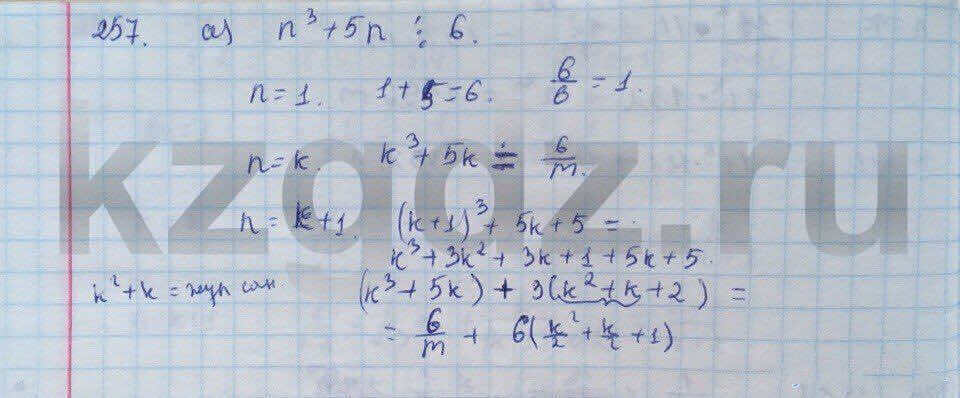 257. a) n³ + 5n ⋮ 6.
n = 1. 1 + 5 = 6. 6/6 = 1.
n = k. k³ + 5k = 6/m.
n = k + 1 (k + 1)³ + 5k + 5 =
k³ + 3k² + 3k + 1 + 5k + 5.
k² + k = жұп сан. (k³ + 5k) + 3(k² + k + 2) =
= 6/m + 6(k²/2 + k/2 + 1)
kzgdz.ru